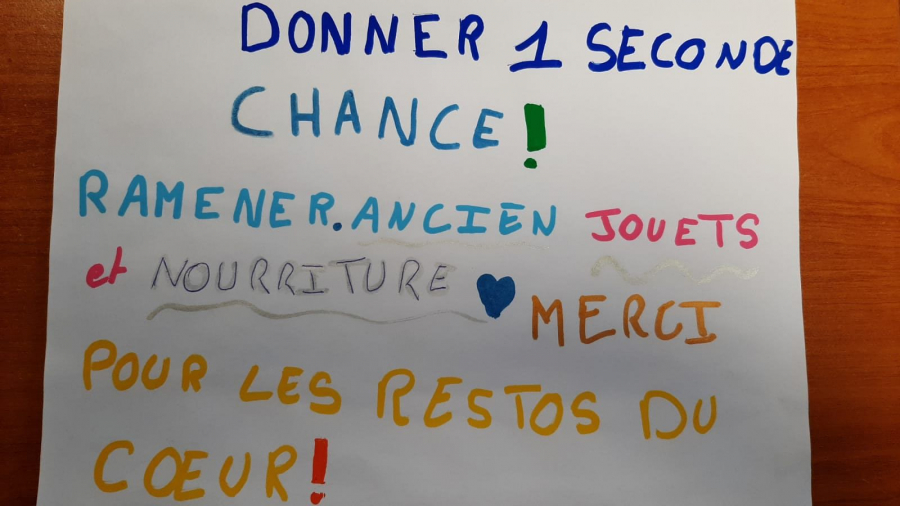 DONNER 1 SECONDE
CHANCE!
RAMENER.ANCIEN JOUETS
et NOURRITURE MERCI
POUR LES RESTOS DU
CŒUR!